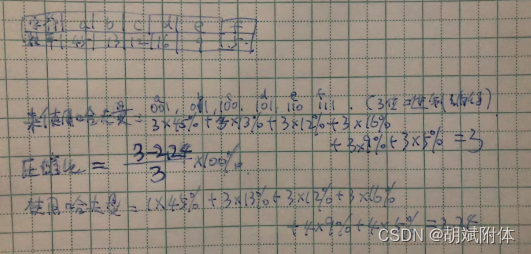 字符 a b c d e f
频率 45 13 12 16 9 5
未使用哈夫曼 = 001, 011, 100, 101, 110 111. (3位二进制
3×45% + 3×13% + 3×12% + 3×16%
+ 3×9% + 3×5% = 3
压缩比 = 3-2.24 / 3 ×100%
使用哈夫曼 = 1×45% + 3×13% + 3×12% + 3×16%
+ 4×9% + 4×5% = 2.24
CSDN @胡斌附体